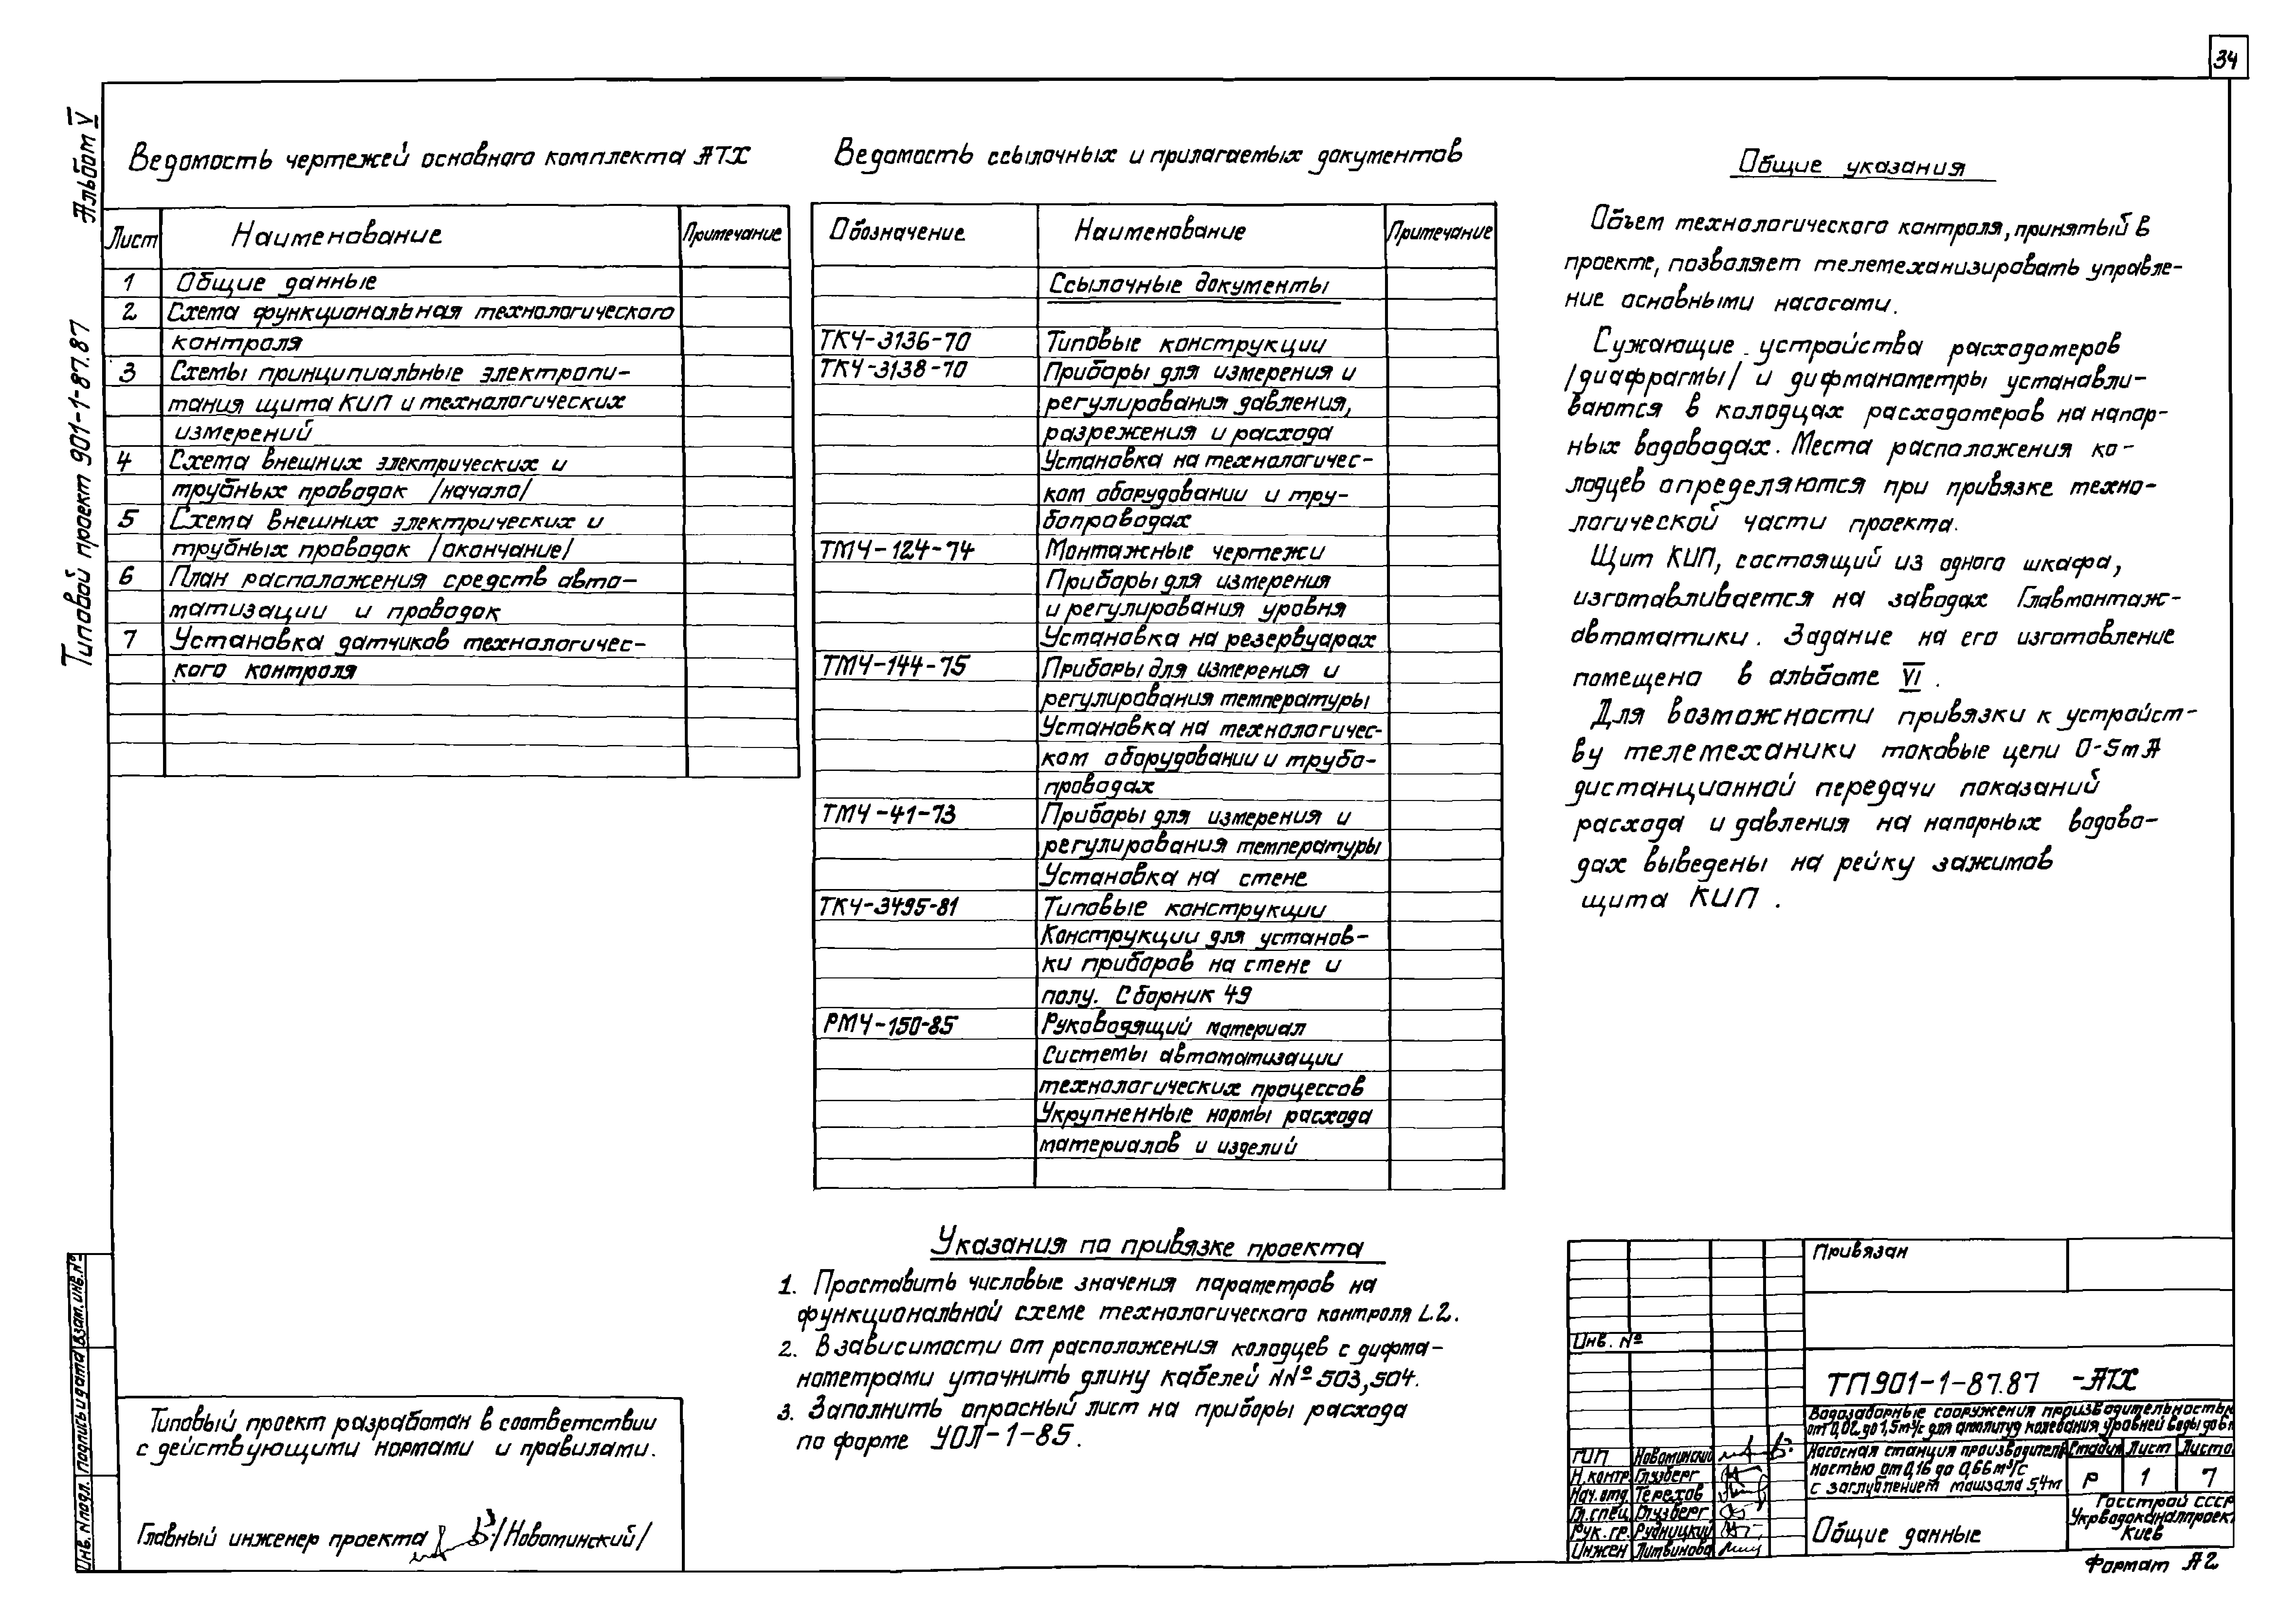 34
Альбом V
Типовой проект 901-1-87.87
Ведомость чертежей основного комплекта АТХ
Лист Наименование Примечание
1 Общие данные
2 Схема функциональная технологического
контроля
3 Схемы принципиальные электропи-
тания щита КИП и технологических
измерений
4 Схема внешних электрических и
трубных проводок /начало/
5 Схема внешних электрических и
трубных проводок /окончание/
6 План расположения средств авто-
матизации и проводок
7 Установка датчиков технологичес-
кого контроля
Ведомость ссылочных и прилагаемых документов
Обозначение Наименование Примечание
Ссылочные документы
ТКЧ-3136-70 Типовые конструкции
ТКЧ-3138-70 Приборы для измерения и
регулирования давления,
разрежения и расхода
Установка на технологичес-
ком оборудовании и тру-
бопроводах
ТМЧ-124-74 Монтажные чертежи
Приборы для измерения
и регулирования уровня
Установка на резервуарах
ТМЧ-144-75 Приборы для измерения и
регулирования температуры
Установка на технологичес-
ком оборудовании и трубо-
проводах
ТМЧ-41-73 Приборы для измерения и
регулирования температуры
Установка на стене
ТКЧ-3495-81 Типовые конструкции
Конструкции для установ-
ки приборов на стене и
полу. Сборник 49
РМЧ-150-85 Руководящий материал
Системы автоматизации
технологических процессов
Укрупненные нормы расхода
материалов и изделий
Общие указания
Объем технологического контроля, принятый в
проекте, позволяет телемеханизировать управле-
ние основными насосами.
Сужающие устройства расходомеров
/диафрагмы/ и дифманометры устанавли-
ваются в колодцах расходомеров на напор-
ных водоводах. Места расположения ко-
лодцев определяются при привязке техно-
логической части проекта.
Щит КИП, состоящий из одного шкафа,
изготавливается на заводах Главмонтаж-
автоматики. Задание на его изготовление
помещено в альбоме VI.
Для возможности привязки к устройст-
ву телемеханики токовые цепи 0-5мА
дистанционной передачи показаний
расхода и давления на напорных водово-
дах выведены на рейку зажимов
щита КИП.
Указания по привязке проекта
1. Проставить числовые значения параметров на
функциональной схеме технологического контроля L.2.
2. В зависимости от расположения колодцев с дифма-
нометрами уточнить длину кабелей №№ 503, 504.
3. Заполнить опросный лист на приборы расхода
по форме УОЛ-1-85.
Типовый проект разработан в соответствии
с действующими нормами и правилами.
Главный инженер проекта /Новоминский/
Инв. № подл. Подпись и дата Взам. инв. №
Привязан
Инв. №
ТП 901-1-87.87 -АТХ
Водозаборные сооружения производительностью
от 0,02 до 1,5м³/с для амплитуд колебания уровней воды до 6м
Насосная станция производитель-
ностью от 0,16 до 0,66м³/с
с заглублением машзала 5,4м
Стадия Лист Листо
Р 1 7
ГИП Новоминский
Н.контр. Глузберг
Нач.отд. Терехов
Гл.спец. Глузберг
Рук.гр. Рудницкий
Инжен Литвинова
Общие данные
Госстрой СССР
Укрводоканалпроект
Киев
Формат А2